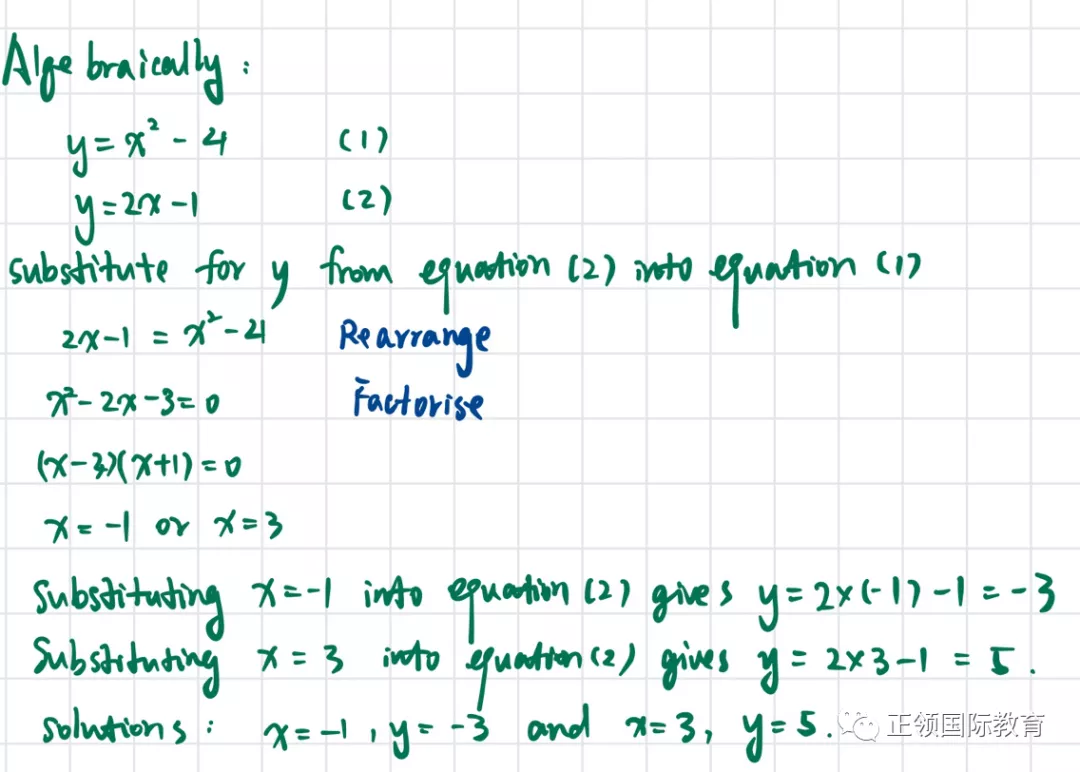 Algebraically:
y = x² - 4 (1)
y = 2x - 1 (2)
substitute for y from equation (2) into equation (1)
2x - 1 = x² - 4 Rearrange
x² - 2x - 3 = 0 Factorise
(x - 3)(x + 1) = 0
x = -1 or x = 3
Substituting x = -1 into equation (2) gives y = 2×(-1) - 1 = -3
Substituting x = 3 into equation (2) gives y = 2×3 - 1 = 5.
solutions: x = -1, y = -3 and x = 3, y = 5.
正领国际教育